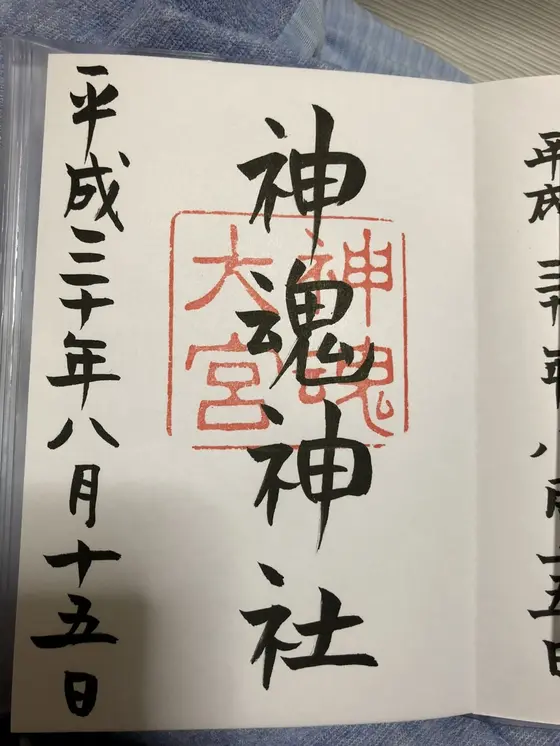 平成三十年八月十五日
神魂神社
神魂
大宮
平成三十年八月十五日